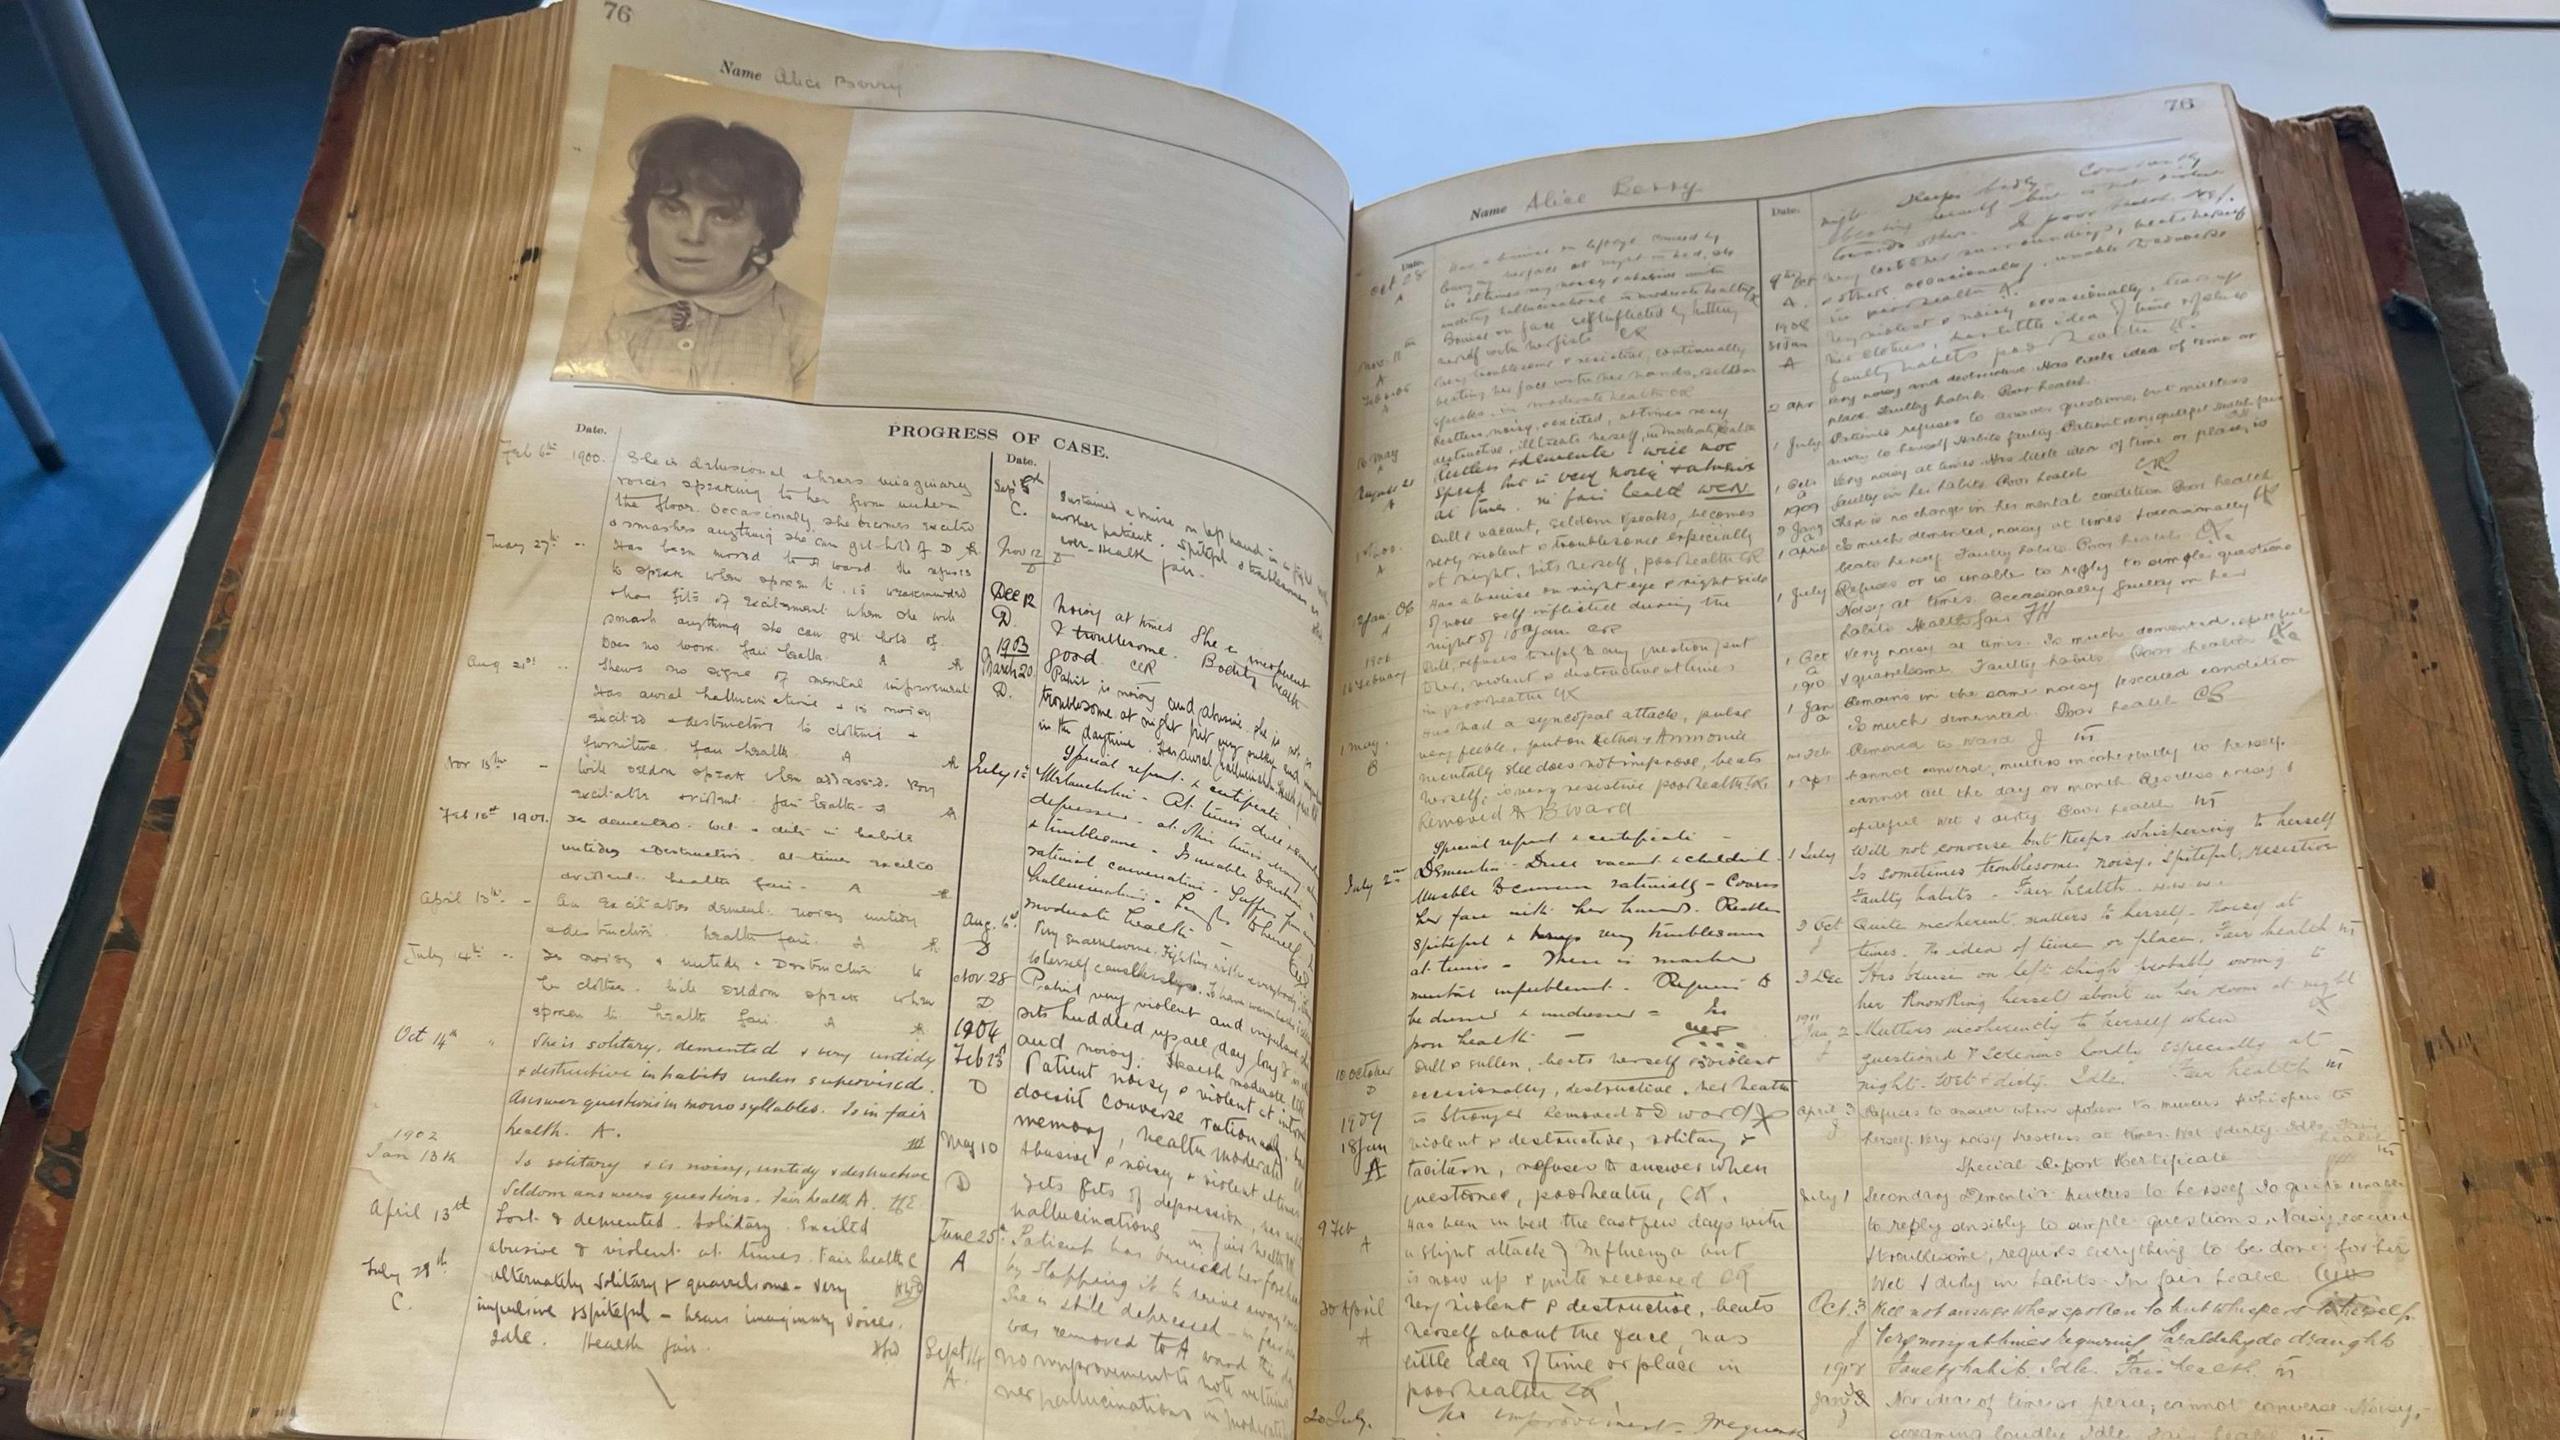 76
Name Alice Berry
PROGRESS OF CASE.
Date.
Feb 6th 1900. She is delusional & hears imaginary
voices speaking to her from under
the floor. Occasionally she becomes excited
& smashes anything she can get hold of D
May 27th Has been moved to A ward. She refuses
to speak when spoken to, is weakminded
& has fits of excitement when she will
smash anything she can get hold of.
Does no work. Fair health. A
Aug 21st Shews no signs of mental improvement
Has aural hallucinations & is noisy
excited & destructive to clothing &
furniture. Fair health. A
Nov 15th Will seldom speak when addressed. Very
excitable & violent. Fair health - A
Feb 16th 1901. Is demented. Wet & dirty in habits
untidy & destructive. At times excited
& violent. Health fair - A
April 13th An excitable dement. Noisy untidy
& destructive. Health fair. A
July 14th Is noisy & untidy & Destructive to
her clothes. Will seldom speak when
spoken to. Health fair A
Oct 14th She is solitary, demented & very untidy
& destructive in habits unless supervised.
Answers questions in monosyllables. Is in fair
health. A.
1902
Jan 13th Is solitary & is noisy, untidy & destructive
Seldom answers questions. Fair health A.
April 13th Lost & demented. Solitary. Excited
abusive & violent at times. Fair health C
July 29th Alternately solitary & quarrelsome - very
C. impulsive & spiteful - hears imaginary voices.
Idle. Health fair.
Date.
Sep
C. Sustained a bruise on left hand in a fight with
another patient. Spiteful & troublesome
Health fair.
Nov 12
D
Dec 12 Noisy at times She is incoherent
D. & troublesome. Bodily health
good. CR
1903
March 20 Patient is noisy and abusive. She is
D. troublesome at night but very
in the daytime. Has aural hallucinations.
Special report & certificate
July 1st Melancholia - At times dull &
depressed - at other times
& troublesome - Is unable to
rational conversation - Suffers from
hallucinations - Laughs to herself
moderate health -
Aug. 6th Very quarrelsome. Fighting with everybody
D to herself
Nov 28 Patient very violent and impulsive
D sits huddled up all day long &
and noisy. Health moderate
1904
Feb 23rd Patient noisy & violent at
D doesn't converse rationally,
memory, health moderate
May 10 Abusive & noisy & violent at times
D Gets fits of depression, has
hallucinations in fair health
June 25th Patient has bruised her forehead
A by slapping it to
She is still depressed - in fair
was removed to A ward this day
Sept 14 no improvement to note retains
A. her hallucinations in moderate
76
Name Alice Berry
Date.
Oct 28 Has a bruise on left eye caused by
A herself at night in bed, she
is at times very noisy & abusive with
auditory hallucinations in moderate health
Nov. 11th Bruise on face self inflicted by hitting
A herself with her fists CR
Feb very troublesome & resistive, continually
A beating her face with her hands, seldom
speaks, in moderate health CR
16 May Restless, noisy, excited, at times very
destructive, illtreats herself, in moderate health
August 21 Restless & demented. Will not
A speak but is very noisy & abusive
at times. In fair health
1st Nov. Dull & vacant, seldom speaks, becomes
A very violent & troublesome especially
at night, hits herself, poor health CR
2 Jan. 06 Has a bruise on right eye & right side
A of nose self inflicted during the
night of Jan. CR
1906
16 February Dull, refuses to reply to any question put
to her, violent & destructive at times
in poor health CR
1 May. Has had a syncopal attack, pulse
B very feeble, put on Ether & Ammonia
mentally she does not improve, beats
herself, is very resistive poor health CR
Removed to B Ward
Special report & certificate -
July 2nd Dementia - Dull vacant & childish.
Unable to converse rationally - Covers
her face with her hands. Restless
spiteful & very troublesome
at times - There is marked
mental enfeeblement. Requires to
be dressed & undressed - In
poor health -
10 October Dull & sullen, beats herself & is violent
D occasionally, destructive, her health
is Stronger Removed to D ward
1907
18 Jan violent & destructive, solitary &
A taciturn, refuses to answer when
questioned, poor health, CR.
9 Feb Has been in bed the last few days with
A a slight attack of Influenza but
is now up & quite recovered CR
30 April Very violent & destructive, beats
A herself about the face, has
little idea of time or place in
poor health CR
20 July. No improvement - Frequent
Date.
night Sleeps badly Constantly
beating herself but is not violent
towards others. In poor health
9th Oct very lost to her surroundings, beats herself
A. & others occasionally, unable to
in poor health
1908
31 Jan Very violent & noisy occasionally, tears up
A her clothes, has little idea of time or place
faulty habits poor health
2 Apr Very noisy and destructive. Has little idea of time or
place. Faulty habits. Poor health.
1 July Patient refuses to answer questions, but mutters
away to herself. Habits faulty.
1 Oct Very noisy at times. Has little idea of time or place, is
faulty in her habits. Poor health CR
1909
2 Jany There is no change in her mental condition Poor health
1 April Is much demented, noisy at times & occasionally
beats herself Faulty habits. Poor health
1 July Refuses or is unable to reply to simple questions
Noisy at times. Occasionally faulty in her
habits Health fair
1 Oct Very noisy at times. Is much demented, spiteful
& quarrelsome. Faulty habits Poor health
1910
1 Jan Remains in the same noisy excited condition
Is much demented. Poor health
Feb Removed to ward J
1 Apr Cannot converse, mutters incoherently to herself.
cannot tell the day or month noisy &
spiteful Wet & dirty Poor health
1 July Will not converse but keeps whispering to herself
Is sometimes troublesome noisy, spiteful, resistive
Faulty habits - Fair health
3 Oct Quite incoherent. mutters to herself - Noisy at
times. No idea of time or place. Fair health
3 Dec Has bruise on left thigh probably owing to
her knocking herself about in her room at night
1911
Jan 2 Mutters incoherently to herself when
questioned & screams loudly especially at
night. Wet & dirty. Idle. Fair health
April 3 Refuses to answer when spoken to mutters & whispers to
herself. Very noisy & restless at times. Wet & dirty. Idle. Fair
health
Special Report & Certificate
July 1 Secondary Dementia. Mutters to herself Is quite unable
to reply sensibly to simple questions. Noisy, excited
& troublesome, requires everything to be done for her
Wet & dirty in habits. In fair health
Oct. 3 Will not answer when spoken to but whispers to herself.
J Very noisy at times requiring Paraldehyde draughts
Faulty habits. Idle. Fair health.
Jan No idea of time or place, cannot converse. Noisy,
screaming loudly. Idle. Fair health